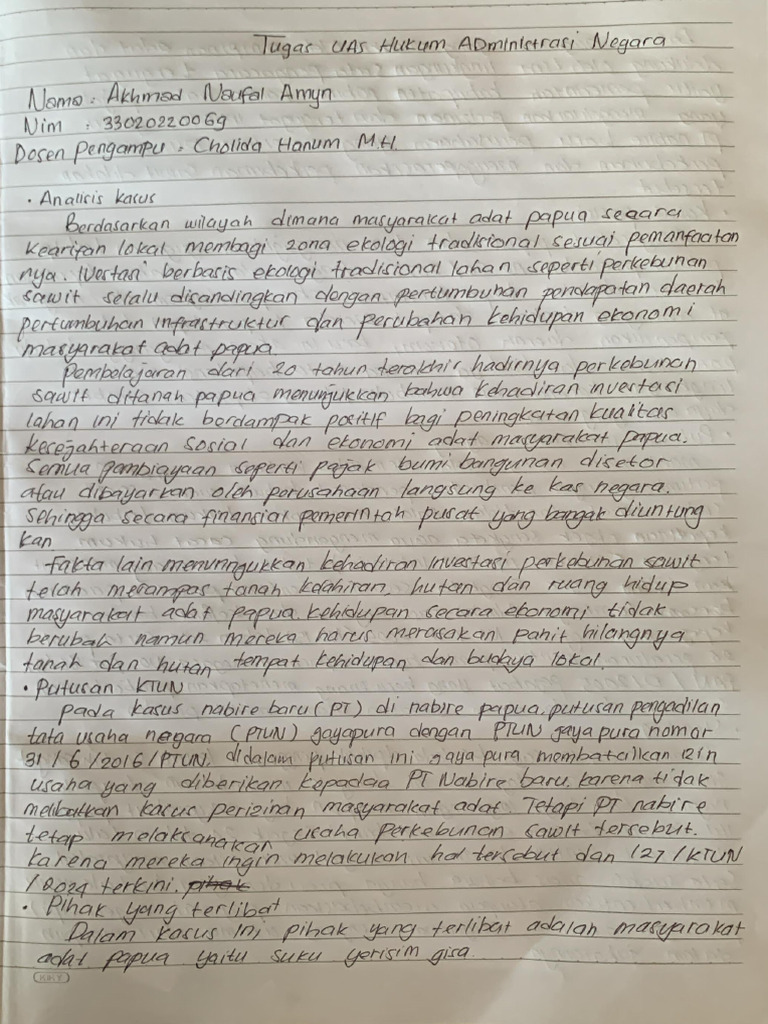 Tugas UAS Hukum Administrasi Negara
Nama : Akhmad Naufal Amyn
Nim : 33020220069
Dosen Pengampu : Cholida Hanum M.H.
• Analisis kasus
Berdasarkan wilayah dimana masyarakat adat papua secara
kearifan lokal membagi zona ekologi tradisional sesuai pemanfaatan
nya. Ivestasi berbasis ekologi tradisional lahan seperti perkebunan
sawit selalu disandingkan dengan pertumbuhan pendapatan daerah
pertumbuhan infrastruktur dan perubahan kehidupan ekonomi
masyarakat adat papua.
Pembelajaran dari 20 tahun terakhir hadirnya perkebunan
sawit ditanah papua menunjukkan bahwa kehadiran investasi
lahan ini tidak berdampak positif bagi peningkatan kualitas
kesejahteraan sosial dan ekonomi adat masyarakat papua.
Semua pambiayaan seperti pajak bumi bangunan disetor
atau dibayarkan oleh perusahaan langsung ke kas negara.
Sehingga secara finansial pemerintah pusat yang bangak diuntung
kan.
Fakta lain menunngukkan kehadiran investasi perkebunan sawit
telah merampas tanah kelahiran, hutan dan ruang hidup
masyarakat adat papua. kehidupan secara ekonomi tidak
berubah namun mereka harus merasakan pahit hilangnya
tanah dan hutan tempat kehidupan dan budaya lokal.
• Putusan KTUN
Pada kasus nabire baru (PT) di nabire papua, putusan pengadilan
tata usaha negara (PTUN) gayapura dengan PTUN gayapura nomor
31/6/2016/PTUN. didalam putusan ini gaya pura membatalkan izin
usaha yang diberikan kepadaa PT Nabire baru. karena tidak
melibatkan kasus perizinan masyarakat adat. Tetapi PT nabire
tetap melaksanakan usaha perkebunan sawit tersebut.
karena mereka ingin melakukan hal tersebut dan 127/KTUN
/2024 terkini. pihak
• Pihak yang terlibat
Dalam kasus ini pihak yang terlibat adalah masyarakat
adat papua yaitu suku yerisim gisa.